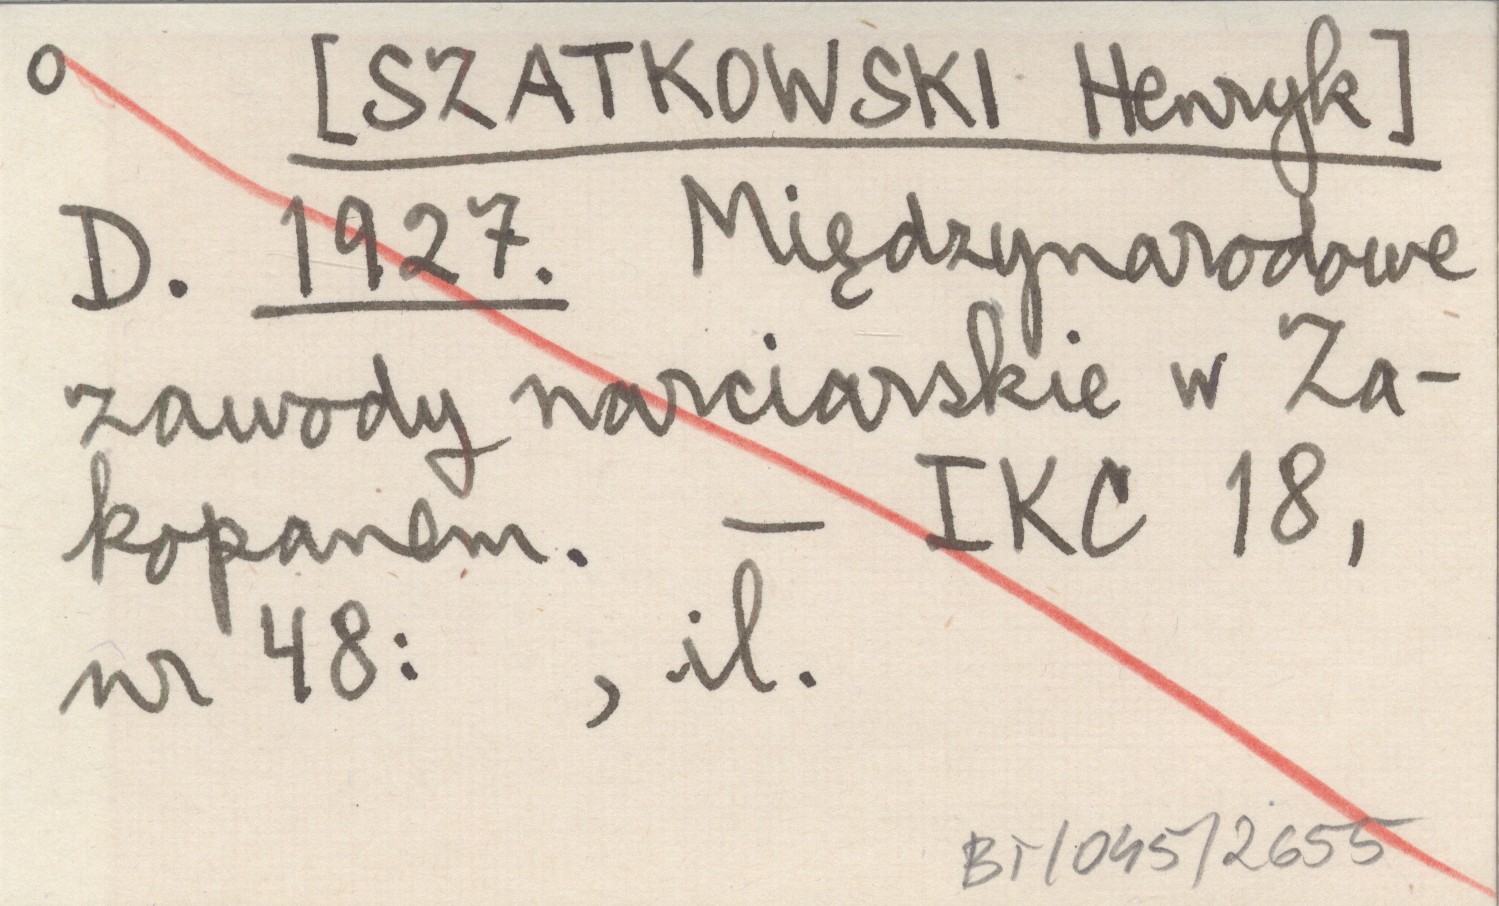 o [SZATKOWSKI Henryk]
D. 1927. Międzynarodowe
zawody narciarskie w Za-
kopanem. — IKC 18,
nr 48: , il.
BT/045/2655